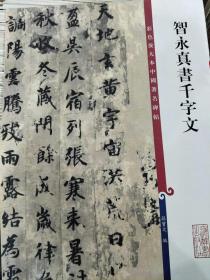 彩色放大本中國著名碑帖
智永真書千字文
孫寶文 編
天地玄黄宇宙洪荒日月
盈昃辰宿列張寒来暑
秋收冬藏閏餘成歲律
調陽雲騰致雨露結為